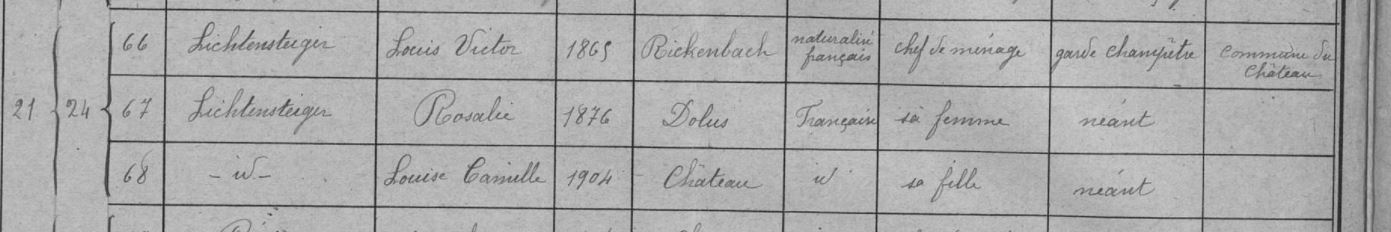 66 Lichtensteiger Louis Victor 1865 Rickenbach naturalisé français chef de ménage garde champêtre commune du Château
21 24 67 Lichtensteiger Rosalie 1876 Dolus Française sa femme néant
68 - id - Louise Camille 1904 Château id sa fille néant